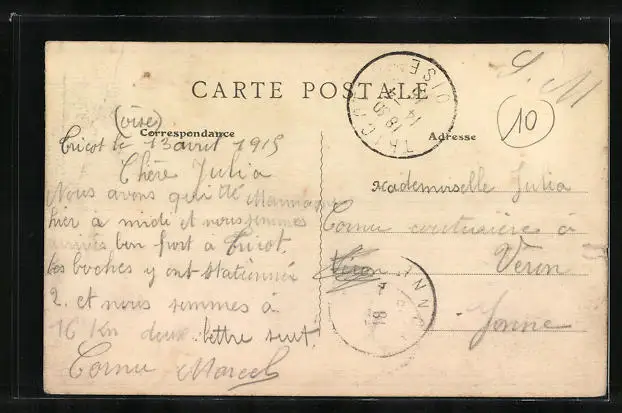 S. M
CARTE POSTALE
TRICOT
18 30
14 -4
15
OISE
10
Correspondance
Adresse
(oise)
Tricot le 13 avril 1915
Chère Julia
Nous avons quitté
hier à midi et nous sommes
arrivés bon port a Tricot.
les boches y ont stationnée
2. et nous sommes à
16 Km deux. lettre suit.
Cornu Marcel
Mademoiselle Julia
Cornu couturière à
Véron
Veron
Yonne
YONNE
18
4